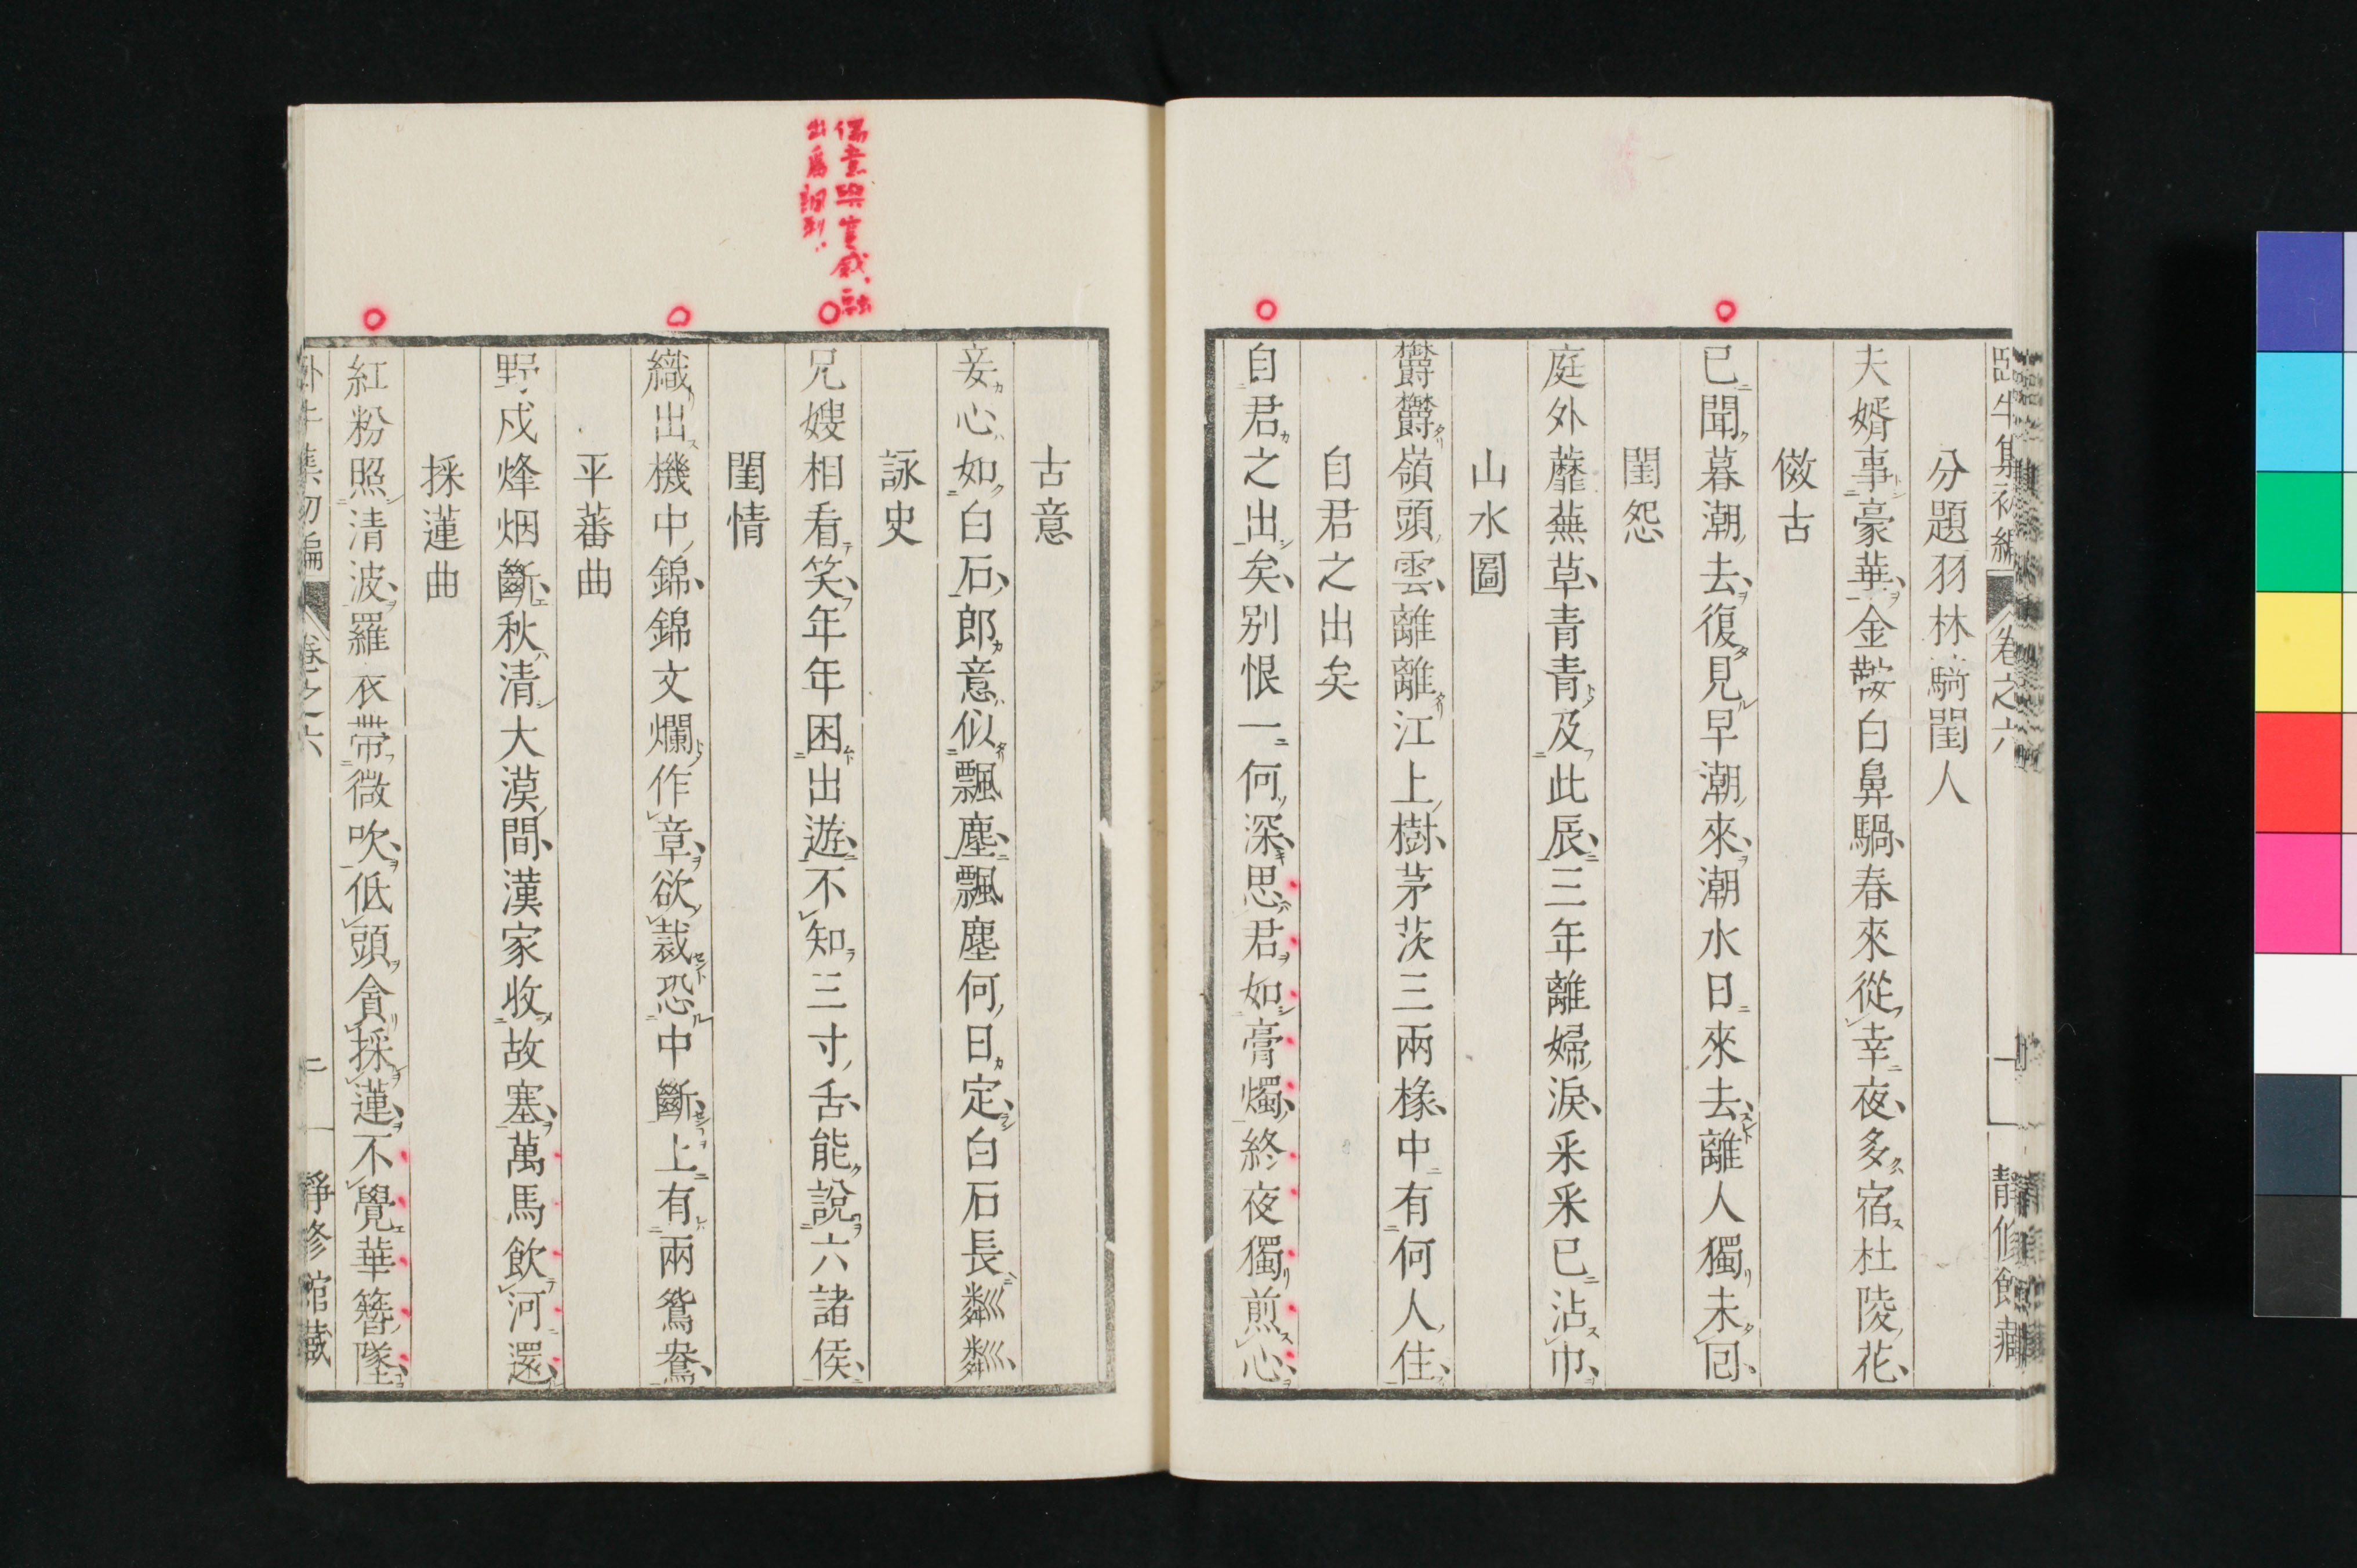 臥牛集初編 卷之六 一 靜修館藏
分題羽林騎閨人
夫婿事豪華金鞍白鼻騧春來從幸夜多宿杜陵花
倣古
已聞暮潮去復見早潮來潮水日來去離人獨未回
閨怨
庭外蘼蕪草青青及此辰三年離婦淚采采已沾巾
山水圖
欝欝嶺頭雲離離江上樹茅茨三兩椽中有何人住
自君之出矣
自君之出矣別恨一何深思君如膏燭終夜獨煎心
古意
妾心如白石郎意似飄塵飄塵何日定白石長粼粼
詠史
兄嫂相看笑年年困出遊不知三寸舌能說六諸侯
閨情
織出機中錦錦文爛作章欲裁恐中斷上有兩鴛鴦
平蕃曲
野戍烽烟斷秋清大漠間漢家收故塞萬馬飲河還
採蓮曲
紅粉照清波羅衣帶微吹低頭貪採蓮不覺華簪墜
臥牛集初編 卷之六 二 靜修館藏